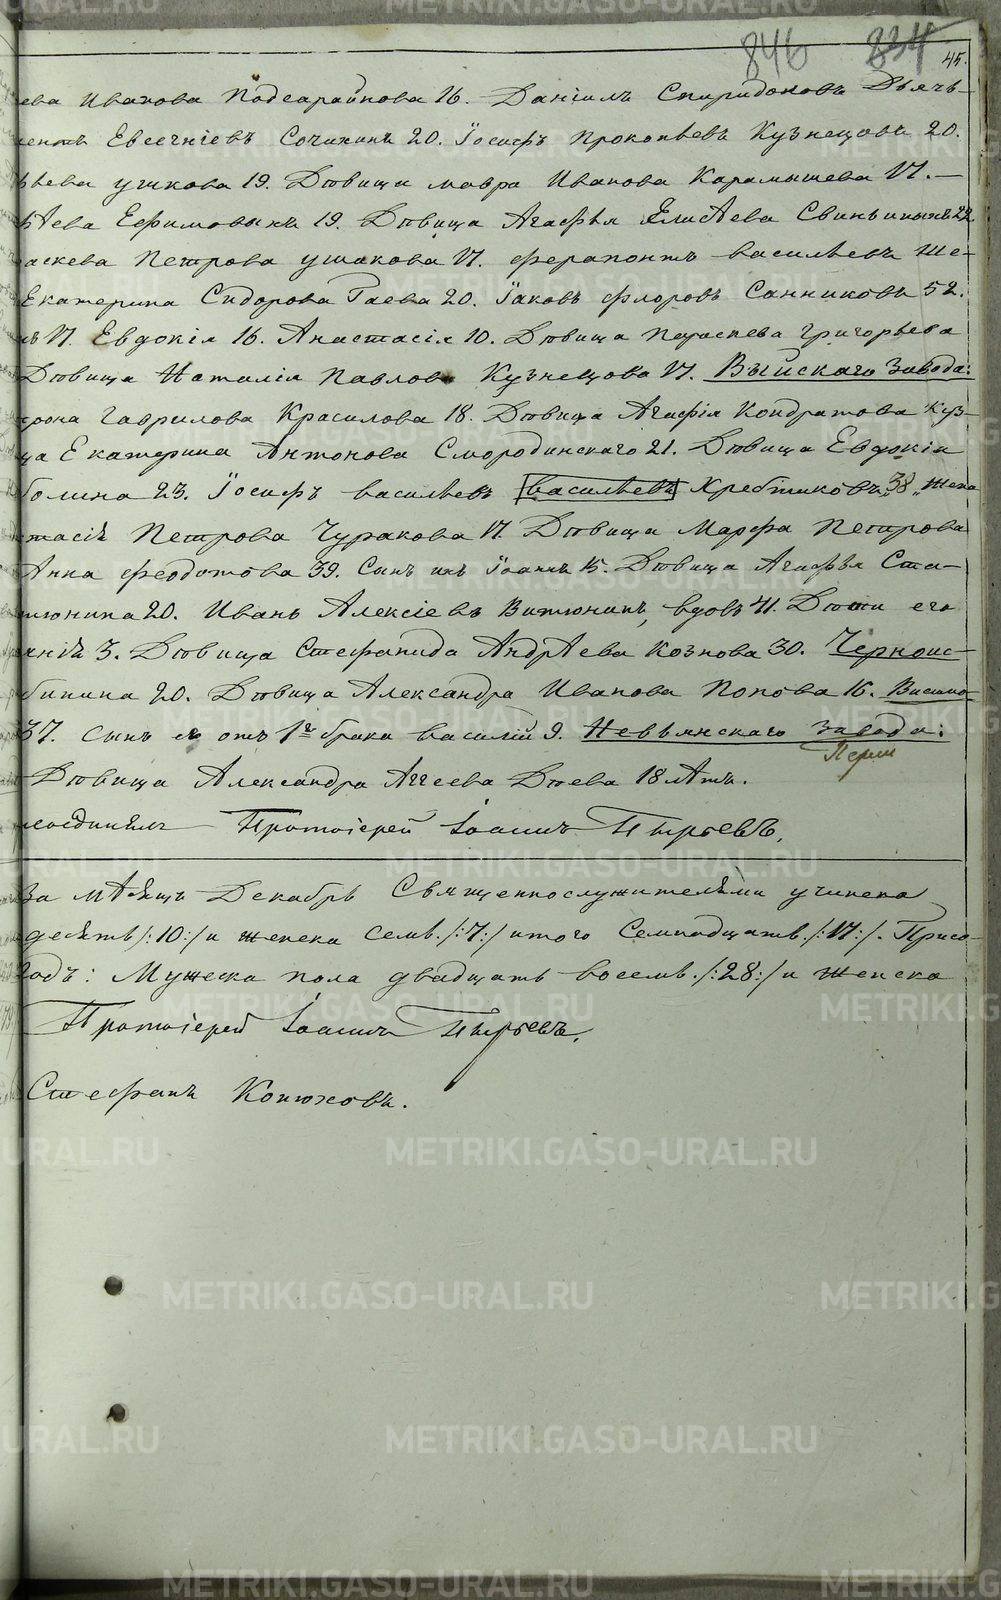 846 834 45.
ева Иванова Подсарайнова 16. Данiилъ Спиридоновъ Дьячь-
Евсегнiевъ Сочихинъ 20. Iосифъ Прокопьевъ Кузнецовъ 20.
ьева Ушкова 19. Дѣвица Мавра Иванова Карамышева 17.
ѣева Ефимовыхъ 19. Дѣвица Агафья Елисѣева Свиньиныхъ 22
аскева Петрова Ушакова 17. Ферапонтъ Васильевъ Ше-
Екатерина Сидорова Гаева 20. Iаковъ Флоровъ Санниковъ 52.
17. Евдокiя 16. Анастасiя 10. Дѣвица Параскева Григорьева
Дѣвица Наталiя Павлова Кузнецова 17. Выйскаго Завода:
Гаврилова Красилова 18. Дѣвица Агафiя Кондратова Куз-
ца Екатерина Антонова Смородинскаго 21. Дѣвица Евдокiя
болина 23. Iосифъ Васильевъ Васильевъ Хребтиковъ „38„ Жена
тасiя Петрова Чуракова 17. Дѣвица Марфа Петрова
Анна Феодотова 39. Сынъ ихъ Iоаннъ 15. Дѣвица Агафья Ста-
тюнина 20. Иванъ Алексiевъ Витюнинъ, вдовъ 41. Дѣти его
3. Дѣвица Стефанида Андрѣева Козлова 30. Черноис-
бинина 20. Дѣвица Александра Иванова Попова 16. Висимо-
37. Сынъ ея отъ 1го брака Василiй 9. Невьянскаго Завода:
Перми
Дѣвица Александра Аггеева Дѣева 18 лѣтъ.
Протоiерей Iоаннъ Пырьевъ.
За мѣсяцъ Декабрь Священнослужителями учинено
десять /:10:/ и женска семь /:7:/ итого Семнадцать /:17:/. Присо-
годъ: Мужеска пола двадцать восемь /:28:/ и женска
Протоiерей Iоаннъ Пырьевъ.
Стефанъ Конюховъ.
METRIKI.GASO-URAL.RU